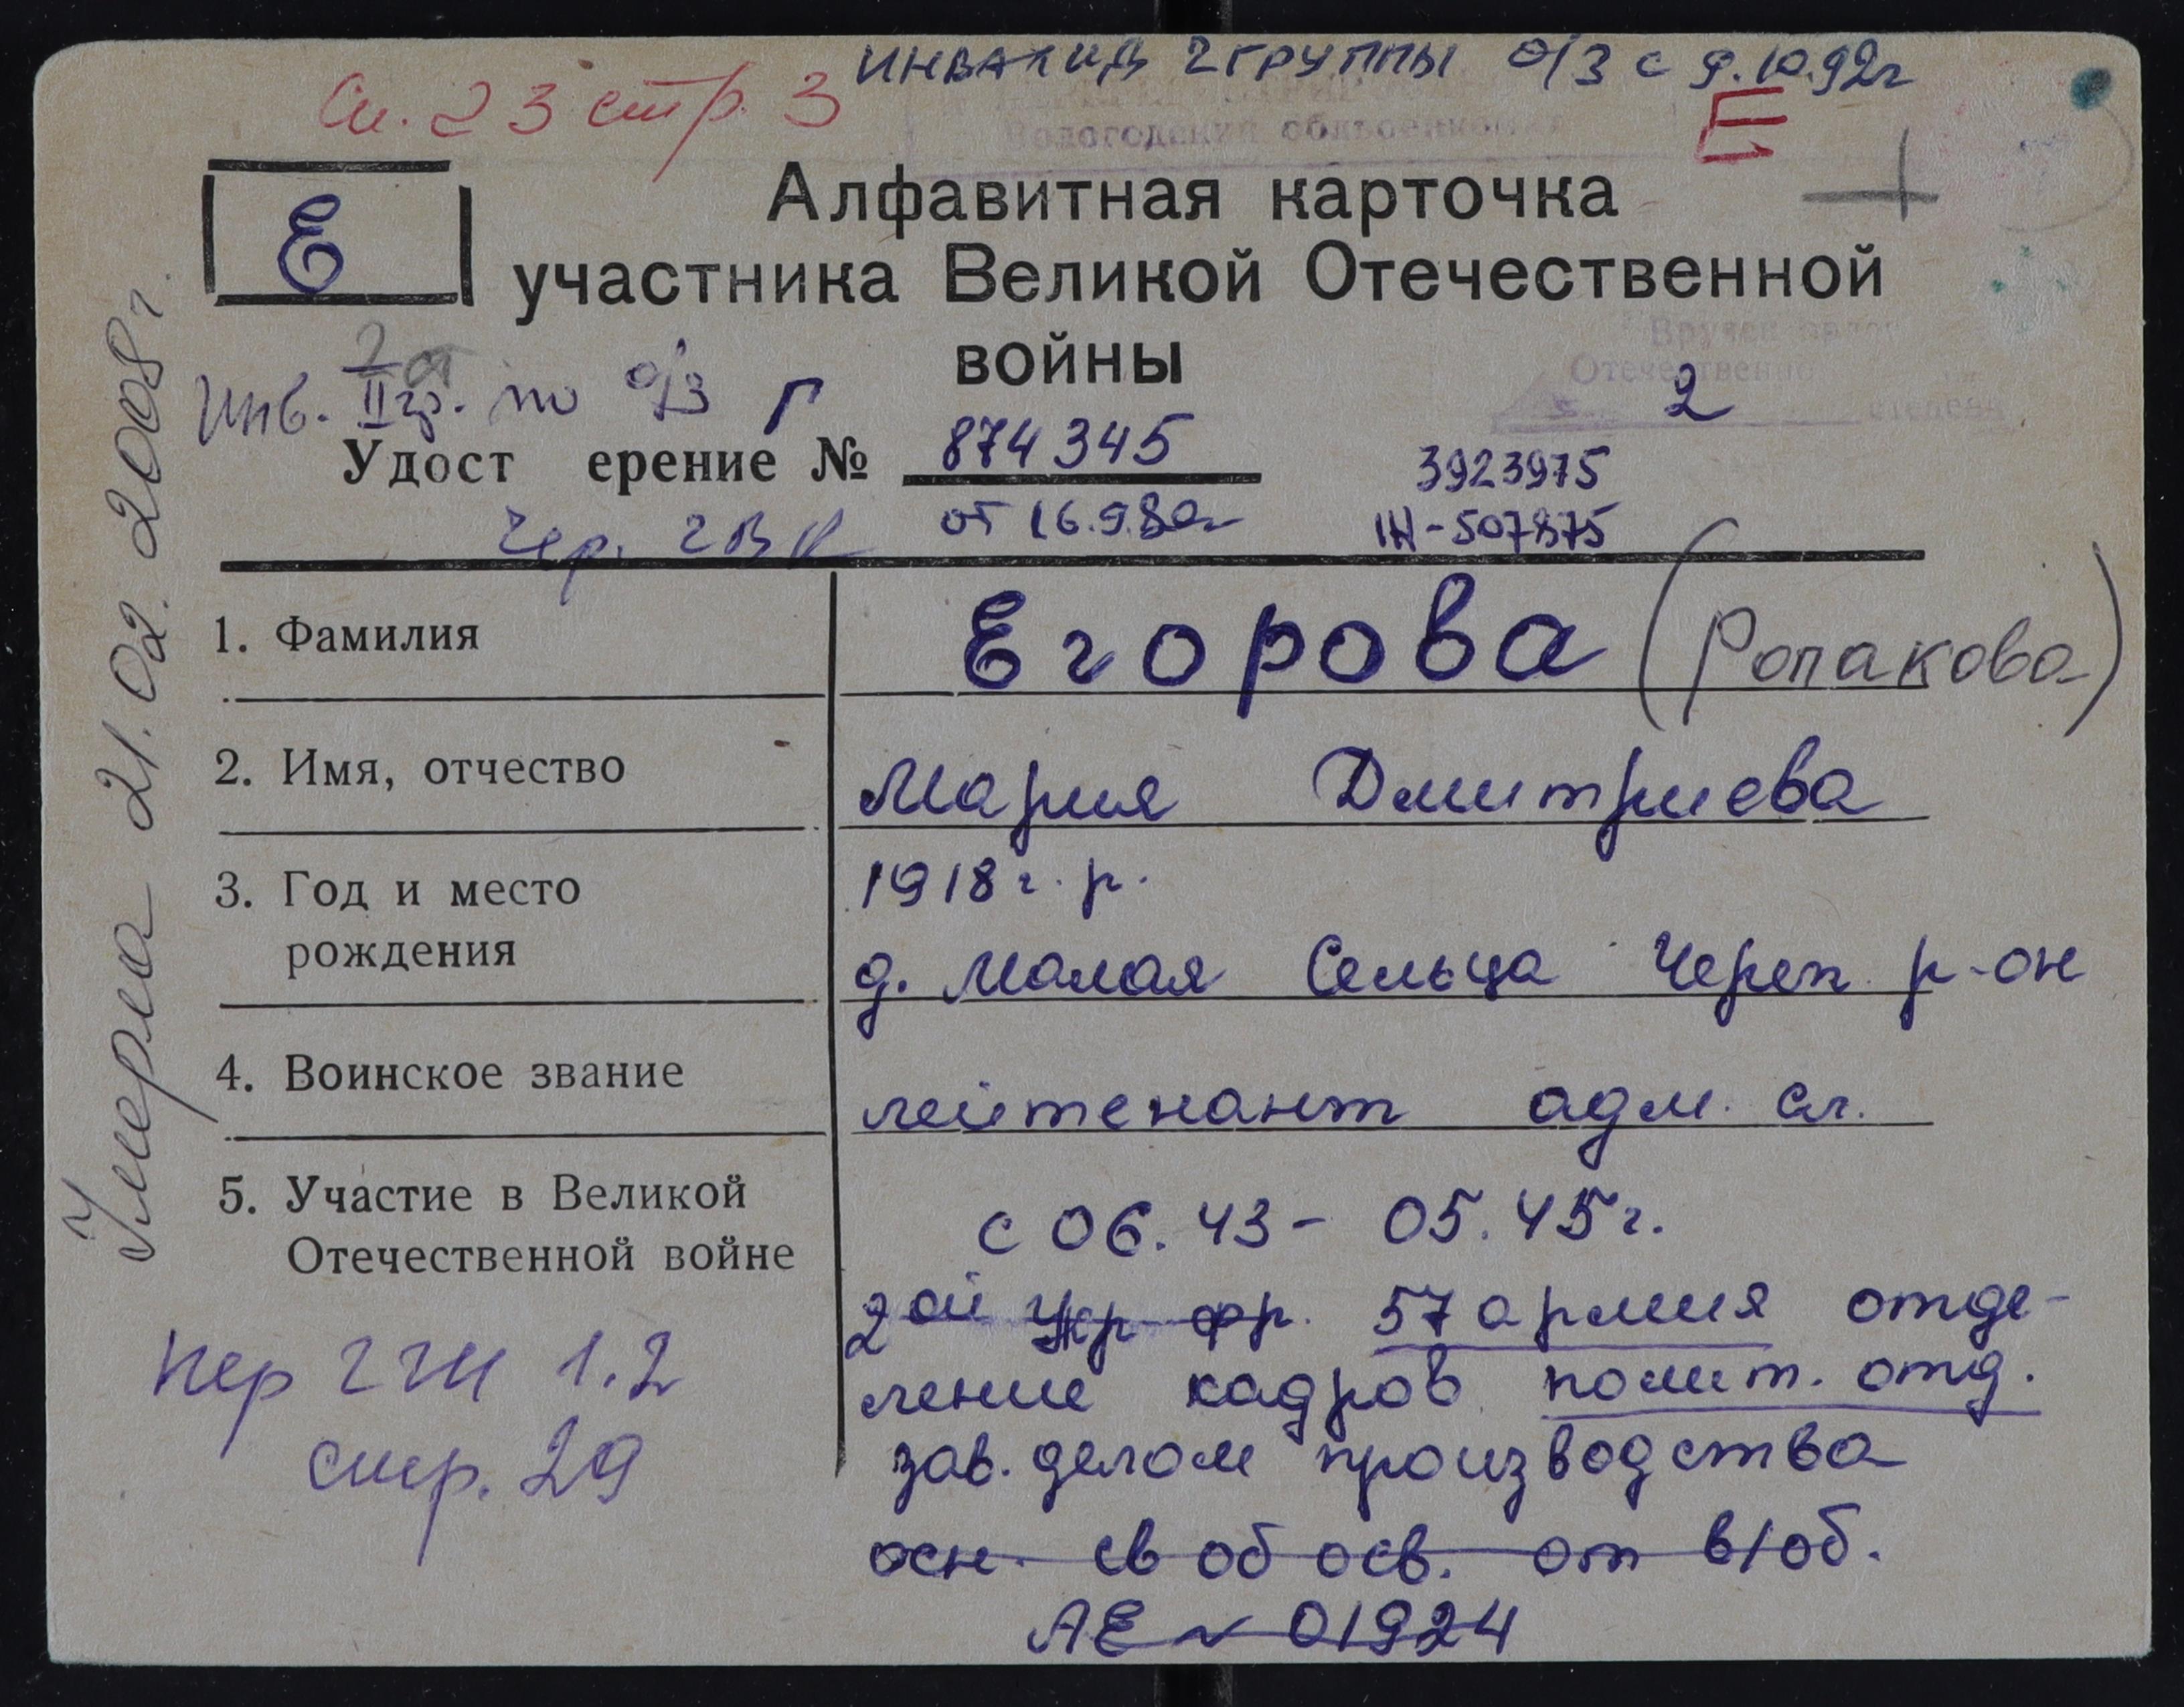 ИНВАЛИД 2 ГРУППЫ О/З с 9.10.92г
Сп. 23 стр. 3
Вологодский облвоенкомат
Е
Е
Алфавитная карточка
участника Великой Отечественной
войны
Вручен орден
Отечественной
2
степени
Инв. II гр. по о/з Г
Удост ерение № 874345
3923975
от 16.9.80г
Чер. ГВК
IH-507875
1. Фамилия
Егорова (Ропакова)
2. Имя, отчество
Мария Дмитриева
3. Год и место
рождения
1918 г. р.
д. Малая Сельца Череп. р-он
4. Воинское звание
лейтенант адм. сл.
5. Участие в Великой
Отечественной войне
с 06.43 - 05.45 г.
2ой Укр фр. 57 армия отде-
ление кадров полит. отд.
зав. делом производства
осн. св об осв. от в/об.
АЕ № 01924
стр. 29
Умерла 21.02.2008г.